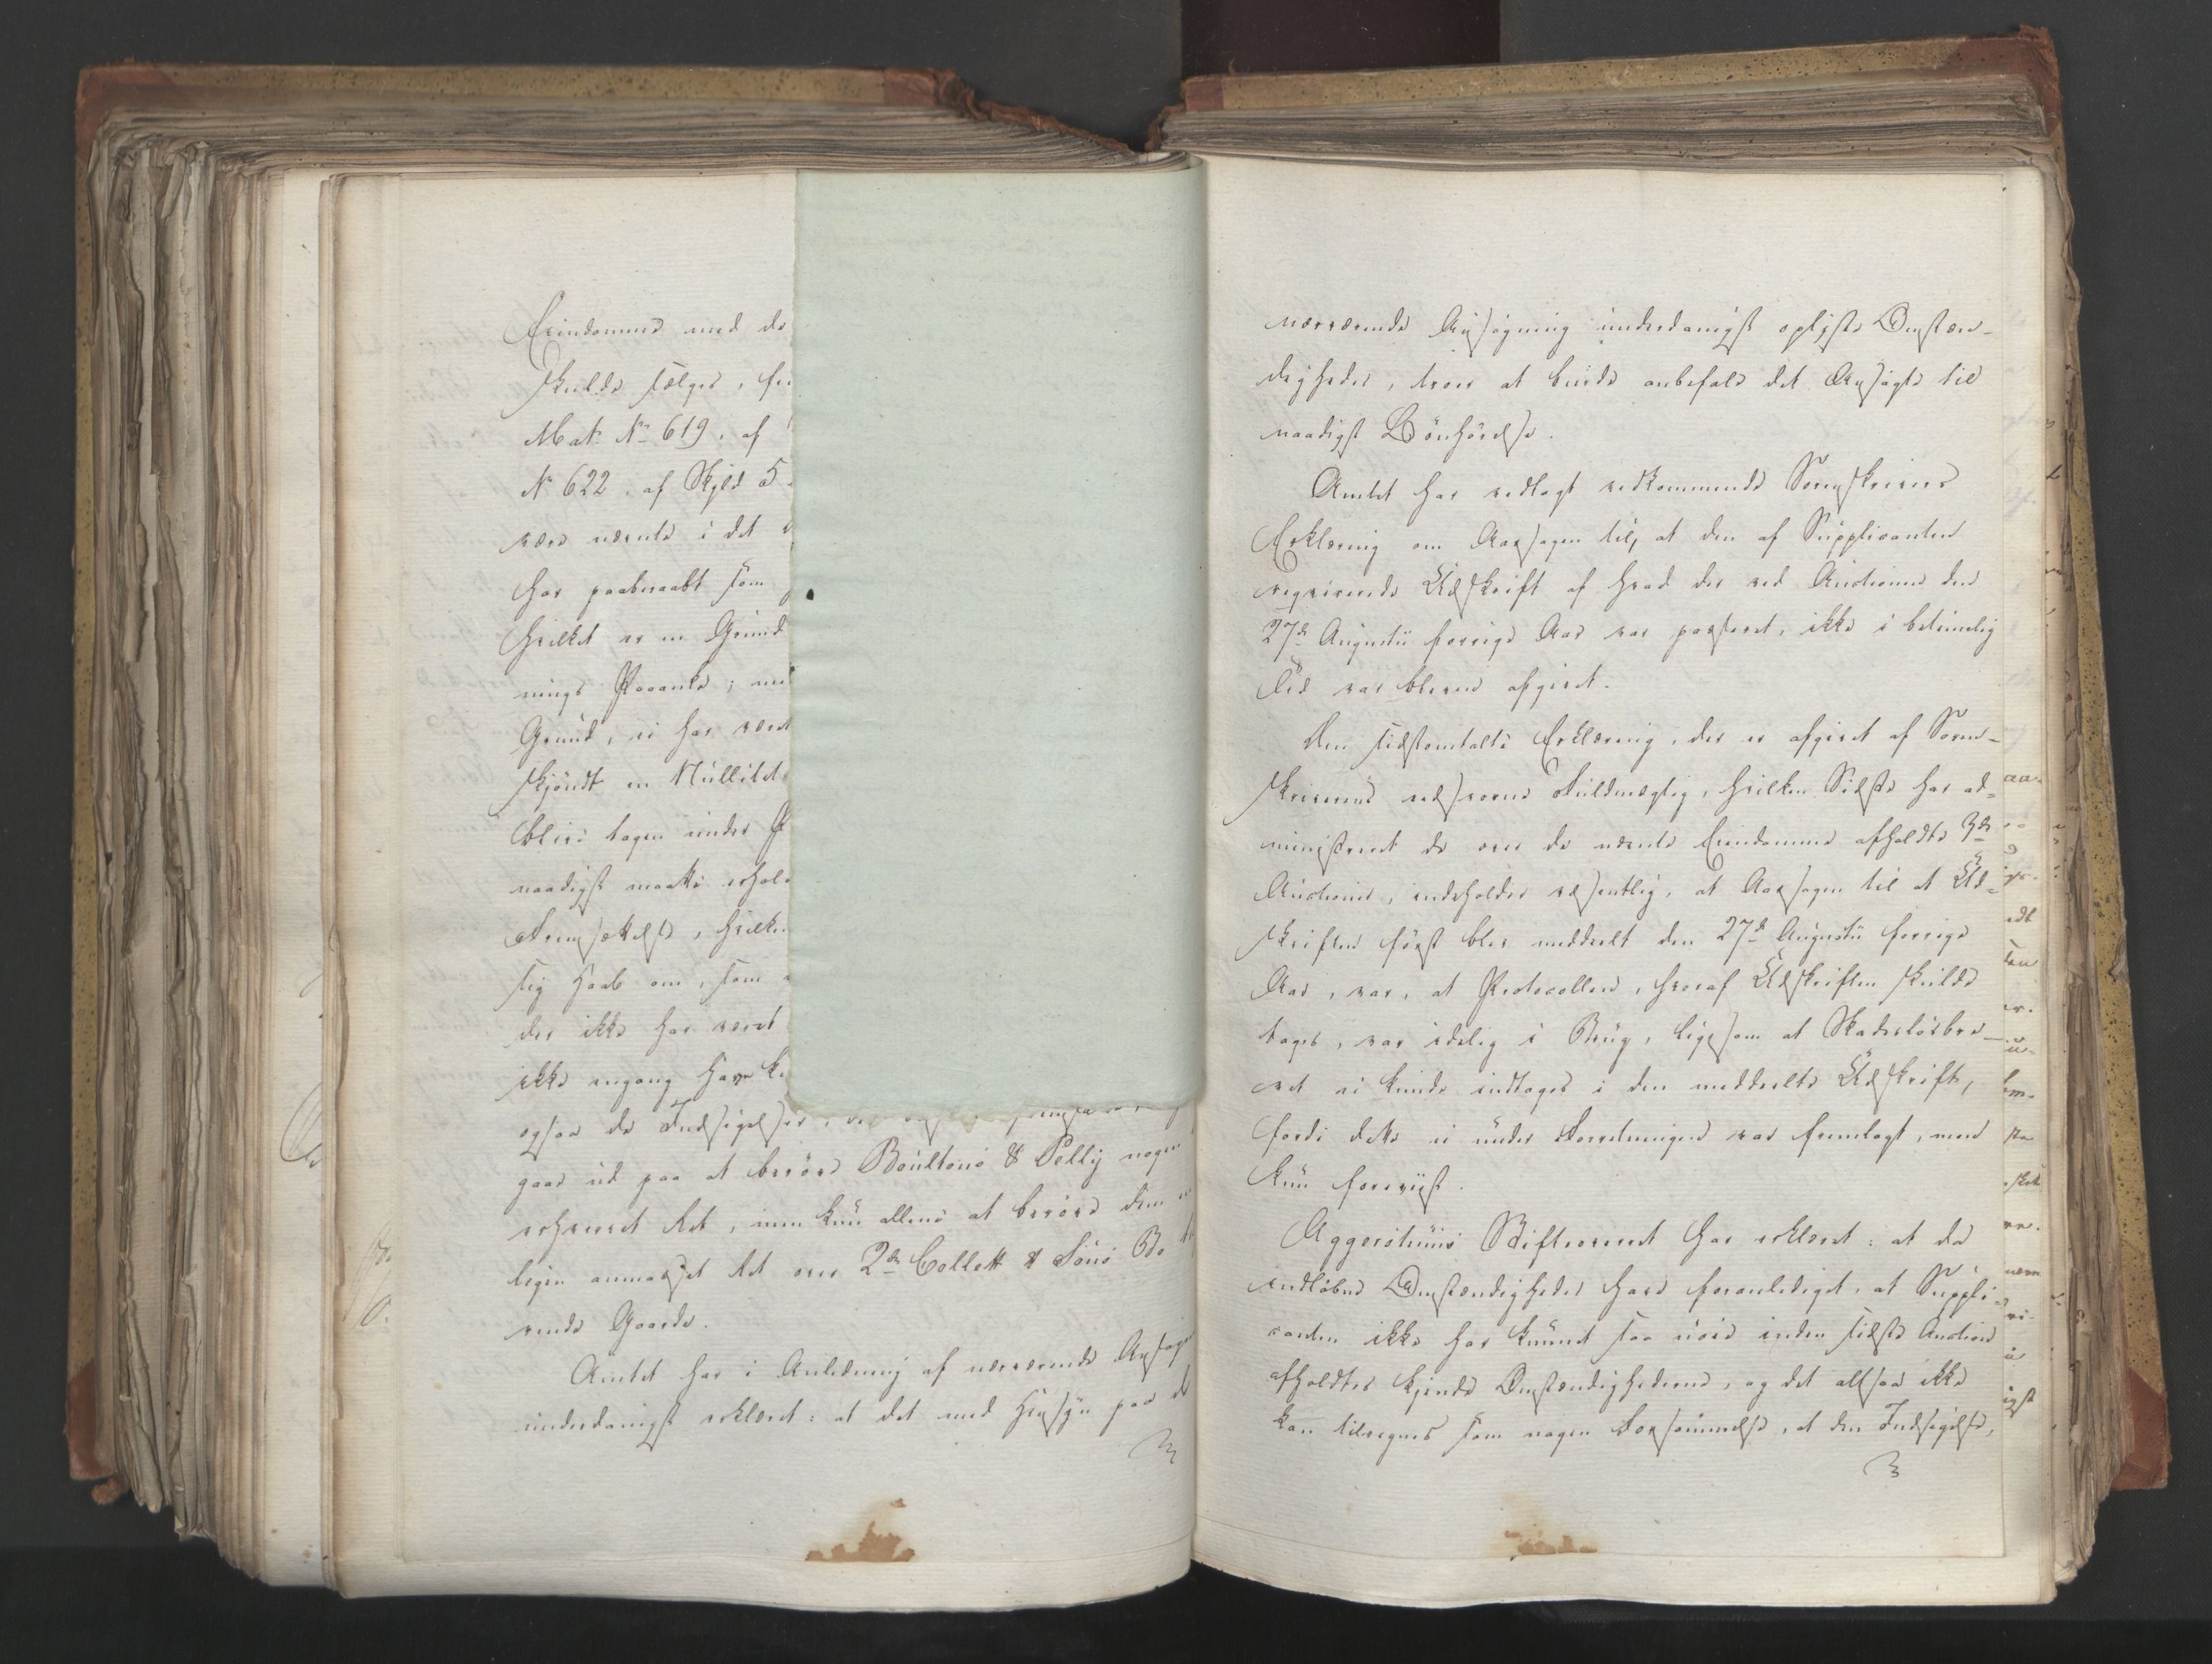 Eiendomme med de
skulde sælges, for
Mat. No 619, af
No 622, af Skyld 5
være nævnte i det
har paaberaabt som
hvilket er en Grund
nings Paaanke; men
Grund, ei har været
skjöndt en Nullitets
blive tagen under P
naadigst maatte erhol
Fremsættelse, hvilken
sig Haab om, som
der ikke har været
ikke engang have ku
ogsaa de Indsigelser,
gaae ud paa at beröve Boultons & Pelly nogen
erhvervet Ret, men kun allene at beröve dem en
ligen anmasset Ret over 2de Collett & Söns Bo
rende Gaarde.
Amtet har i Anledning af nærværende Ansøg
underdanigst erklæret: at det med Hensyn paa de
nærværende Ansøgning underdanigst oplyste Omstæn-
digheder, troer at burde anbefale det Ansøgte til
naadigst Bönhörelse.
Amtet har vedlagt vedkommende Sorenskrivers
Erklæring om Aarsagen til, at den af Supplicanten
reqvirerede Udskrift af hvad der ved Auctionen den
27de Augustii forrige Aar var passeret, ikke i betimelig
Tid var bleven afgivet.
Den sidstomtalte Erklæring, der er afgivet af Soren-
skriverens edsvorne Fuldmægtig, hvilken Sidste har ad-
ministreret de over de nævnte Eiendomme afholdte 3de
Auctioner, indeholder væsentlig, at Aarsagen til at Ud-
skriften först blev meddeelt den 27de Augustii forrige
Aar, var, at Protocollen, hvoraf Udskriften skulde
tages, var idelig i Brug, ligesom at Skadeslösbre-
vet ei kunde indtages i den meddeelte Udskrift,
fordi dette ei under Forretningen var fremlagt, men
kun foreviist.
Aggershuus Stiftsoverret har erklæret: at da
indlöbne Omstændigheder have foranlediget, at Suppli-
canten ikke har kunnet faae noie inden sidste Auction
afholdtes kjende Omstændighederne, og det altsaa ikke
kan tilregnes som nogen Forsømmelse, at den Indsigelse,